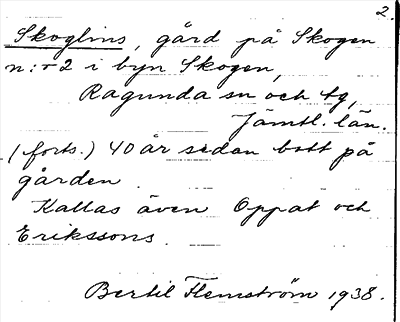 2.
Skoglins, gård på Skogen
n:r 2 i byn Skogen,
Ragunda sn och tg,
Jämtl. län.
(forts.) 40 år sedan bott på
gården.
Kallas även Oppat och
Erikssons.
Bertil Flemström 1938.